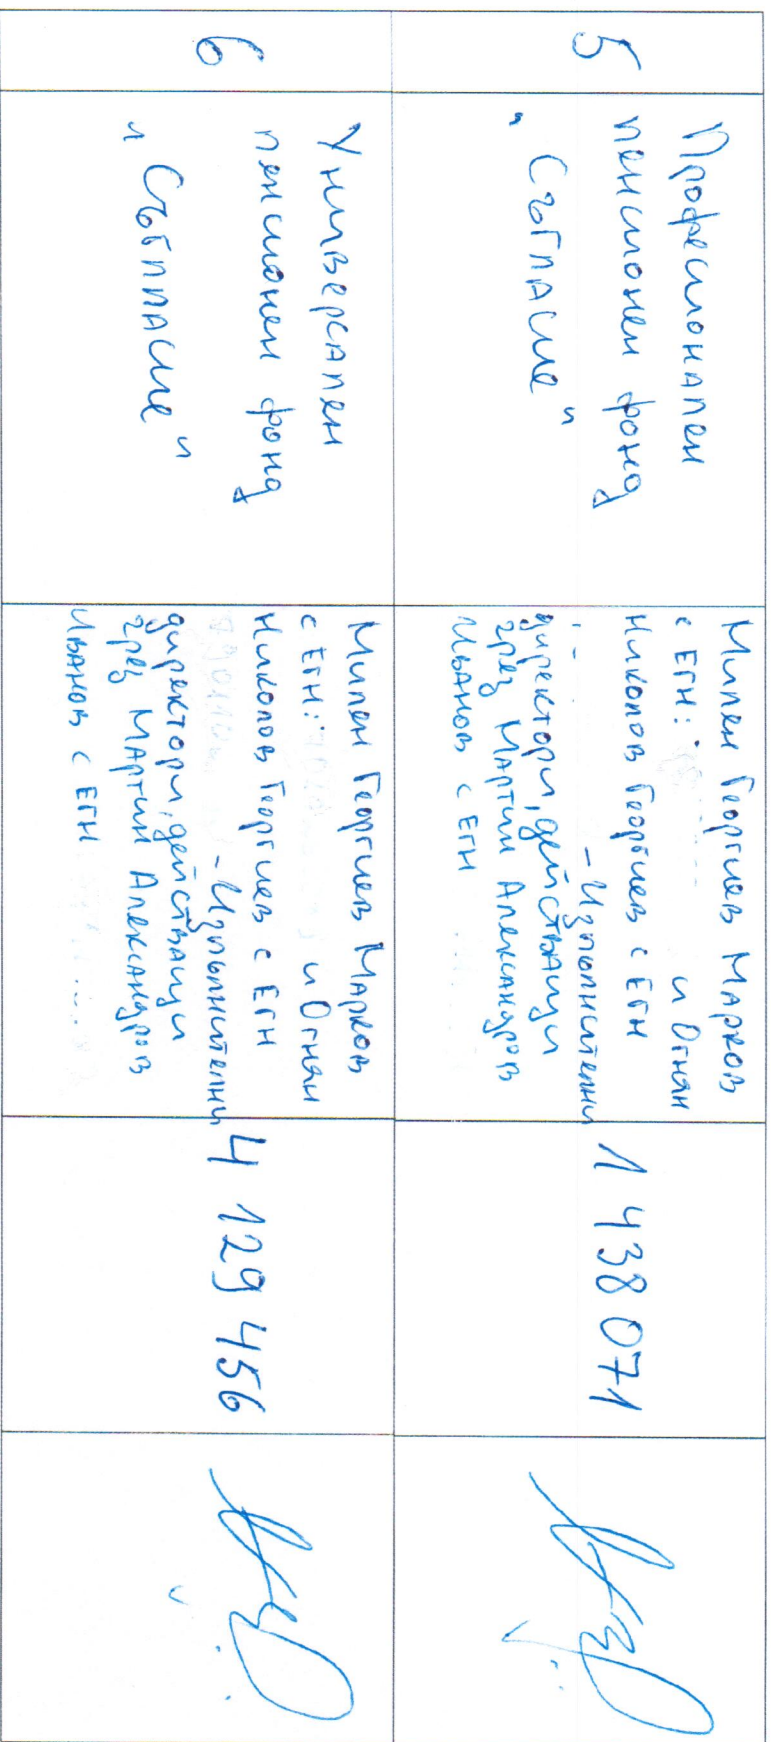 5
Професионален
пенсионен фонд
„Съгласие“
Милен Георгиев Марков
с ЕГН: и Огнян
Николов Георгиев с ЕГН
- Изпълнителни
директори, действащи
чрез Мартин Александров
Иванов с ЕГН
1 438 071
6
Универсален
пенсионен фонд
„Съгласие“
Милен Георгиев Марков
с ЕГН: и Огнян
Николов Георгиев с ЕГН
- Изпълнителни
директори, действащи
чрез Мартин Александров
Иванов с ЕГН
4 129 456